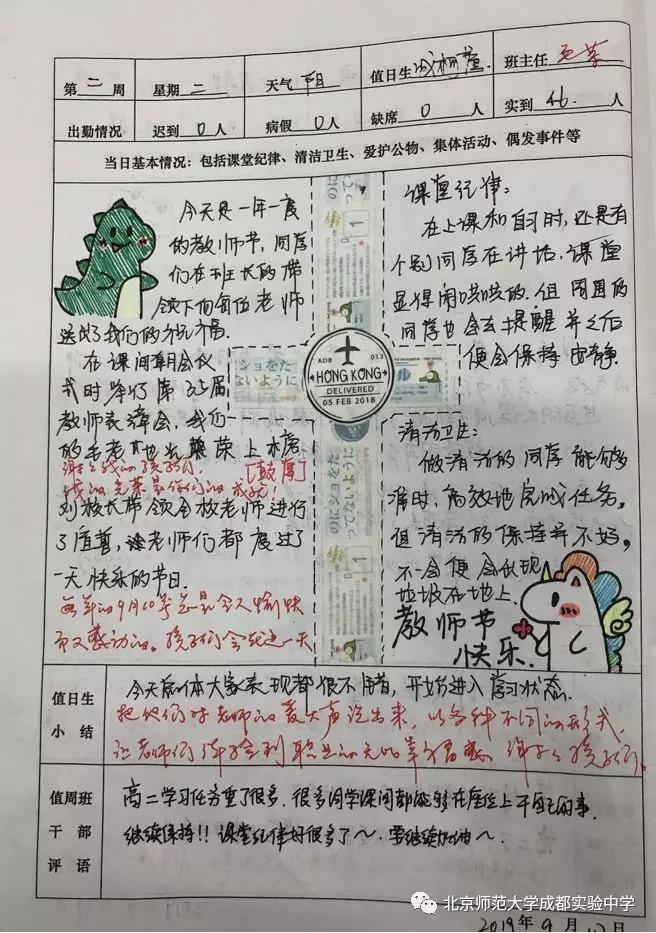 第二周 星期二 天气 阴 值日生 班主任
出勤情况 迟到 0 人 病假 0 人 缺席 0 人 实到 46 人
当日基本情况：包括课堂纪律、清洁卫生、爱护公物、集体活动、偶发事件等
今天是一年一度
的教师节，同学
们在班长的带
领下向每位老师
送出了我们的祝福。
在课间朝会仪
式时举行第35届
教师表彰会，我们
的毛老师也光荣上榜
谢谢我的孩子们。 [鼓唇]
我的光荣是你们的成就！
刘校长带领全校老师进行
了宣誓，老师们都度过了
一天快乐的节日。
每年的9月10号总是令人愉快
而又感动的。孩子们会在这一天
课堂纪律：
在上课和自习时，还是有
个别同学在讲话，课堂
显得闹哄哄的。但周围的
同学也会去提醒并之后
便会保持安静。
清洁卫生：
做清洁的同学能够
准时、高效地完成任务。
但清洁的保持并不好，
不一会便会出现
垃圾在地上。
教师节
快乐.
ショをた
ないように
ADB 013
HONG KONG
DELIVERED
05 FEB 2018
のにショをた
ってないように
值日生
小结
今天总体大家表现都很不错，开始进入学习状态
把他们对老师的爱大声说出来，以各种不同的形式，
让老师们体验到职业的无比幸福感。谢谢孩子们。
值周班
干部
评语
高二学习任务重了很多，很多同学课间都能够在座位上干自己的事.
继续保持!! 课堂纪律好很多了～. 要继续加油～.
北京师范大学成都实验中学
2019年9月10日